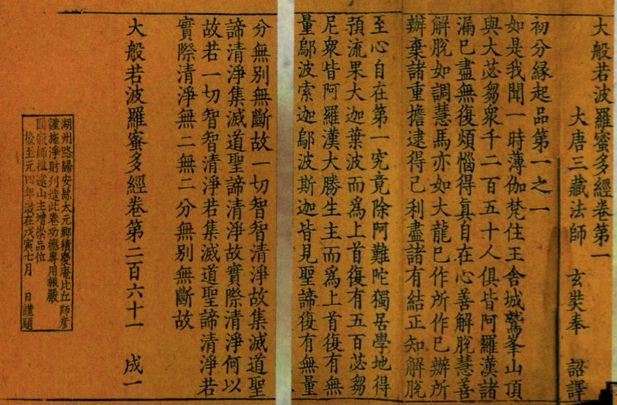 大般若波羅蜜多經卷第一
大唐三藏法師 玄奘奉 詔譯
初分緣起品第一之一
如是我聞一時薄伽梵住王舍城鷲峯山頂
與大苾芻衆千二百五十人俱皆阿羅漢諸
漏已盡無復煩惱得真自在心善解脫慧善
解脫如調慧馬亦如大龍已作所作已辦所
辦棄諸重擔逮得己利盡諸有結正知解脫
至心自在第一究竟除阿難陀獨居學地得
預流果大迦葉波而爲上首復有五百苾芻
尼衆皆阿羅漢大勝生主而爲上首復有無
量鄔波索迦鄔波斯迦皆見聖諦復有無量
分無別無斷故一切智智清淨故集滅道聖
諦清淨集滅道聖諦清淨故實際清淨何以
故若一切智智清淨若集滅道聖諦清淨若
實際清淨無二無二分無別無斷故
大般若波羅蜜多經卷第二百六十一 成一
湖州路歸安縣太元鄉積慶庵比丘
謹施淨財刊造此卷功德專用報嚴
師祖遠山主增崇品位
至元四年歲在戊寅七月 日謹題